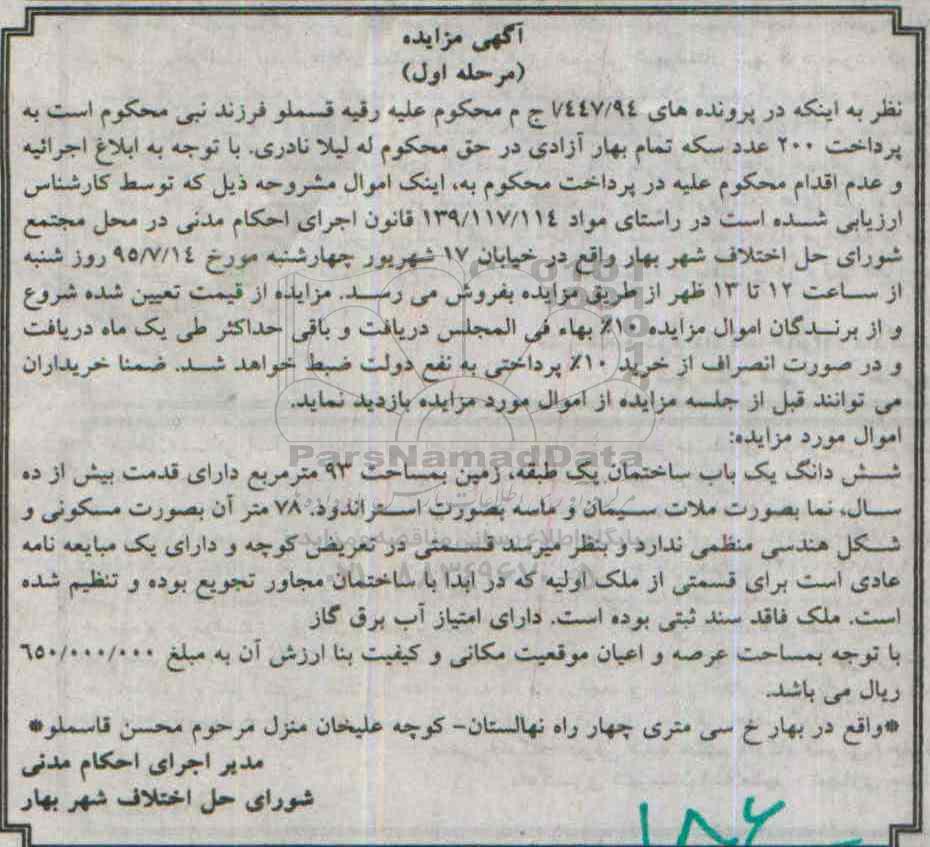 آگهی مزایده
(مرحله اول)
نظر به اینکه در پرونده های ۱/٤٤٧/٩٤ ج م محکوم علیه رقیه قسملو فرزند نبی محکوم است به
پرداخت ۲۰۰ عدد سکه تمام بهار آزادی در حق محکوم له لیلا نادری. با توجه به ابلاغ اجرائیه
و عدم اقدام محکوم علیه در پرداخت محکوم به، اینک اموال مشروحه ذیل که توسط کارشناس
ارزیابی شده است در راستای مواد ۱۳۹/۱۱۷/۱۱٤ قانون اجرای احکام مدنی در محل مجتمع
شورای حل اختلاف شهر بهار واقع در خیابان ۱۷ شهریور چهارشنبه مورخ ۹٥/۷/۱٤ روز شنبه
از ساعت ۱۲ تا ۱۳ ظهر از طریق مزایده بفروش می رسد. مزایده از قیمت تعیین شده شروع
و از برندگان اموال مزایده ۱۰٪ بهاء فی المجلس دریافت و باقی حداکثر طی یک ماه دریافت
و در صورت انصراف از خرید ۱۰٪ پرداختی به نفع دولت ضبط خواهد شد. ضمنا خریداران
می توانند قبل از جلسه مزایده از اموال مورد مزایده بازدید نماید.
اموال مورد مزایده:
ParsNamadData
شش دانگ یک باب ساختمان یک طبقه، زمین بمساحت ۹۳ مترمربع دارای قدمت بیش از ده
سال، نما بصورت ملات سیمان و ماسه بصورت استراندود. ۷۸ متر آن بصورت مسکونی و
شکل هندسی منظمی ندارد و بنظر میرسد قسمتی در تعریض کوچه و دارای یک مبایعه نامه
عادی است برای قسمتی از ملک اولیه که در ابدا با ساختمان مجاور تجویع بوده و تنظیم شده
است. ملک فاقد سند ثبتی بوده است. دارای امتیاز آب برق گاز
با توجه بمساحت عرصه و اعیان موقعیت مکانی و کیفیت بنا ارزش آن به مبلغ ٦٥۰/۰۰۰/۰۰۰
ریال می باشد.
*واقع در بهار خ سی متری چهار راه نهالستان- کوچه علیخان منزل مرحوم محسن قاسملو*
مدیر اجرای احکام مدنی
شورای حل اختلاف شهر بهار